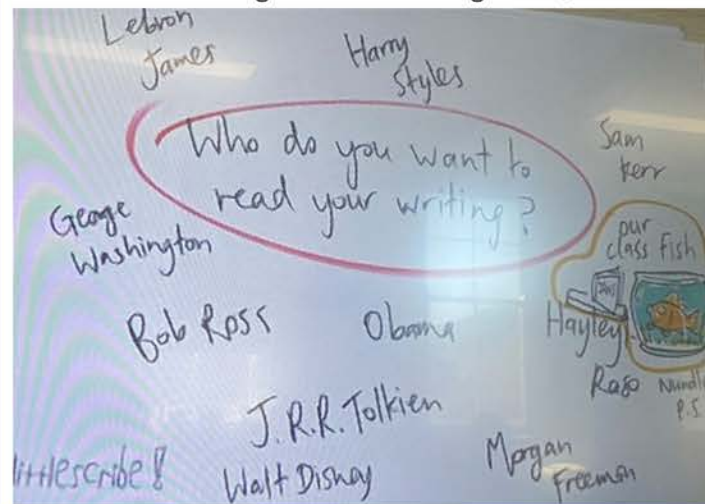 Lebron
James
Harry
Styles
Who do you want to
read your writing?
Sam
Kerr
George
Washington
our
class fish
Bob Ross
Obama
Hayley
Raso
J.R.R. Tolkien
littlescribe!
Walt Disney
Morgan
Freeman
P.S.